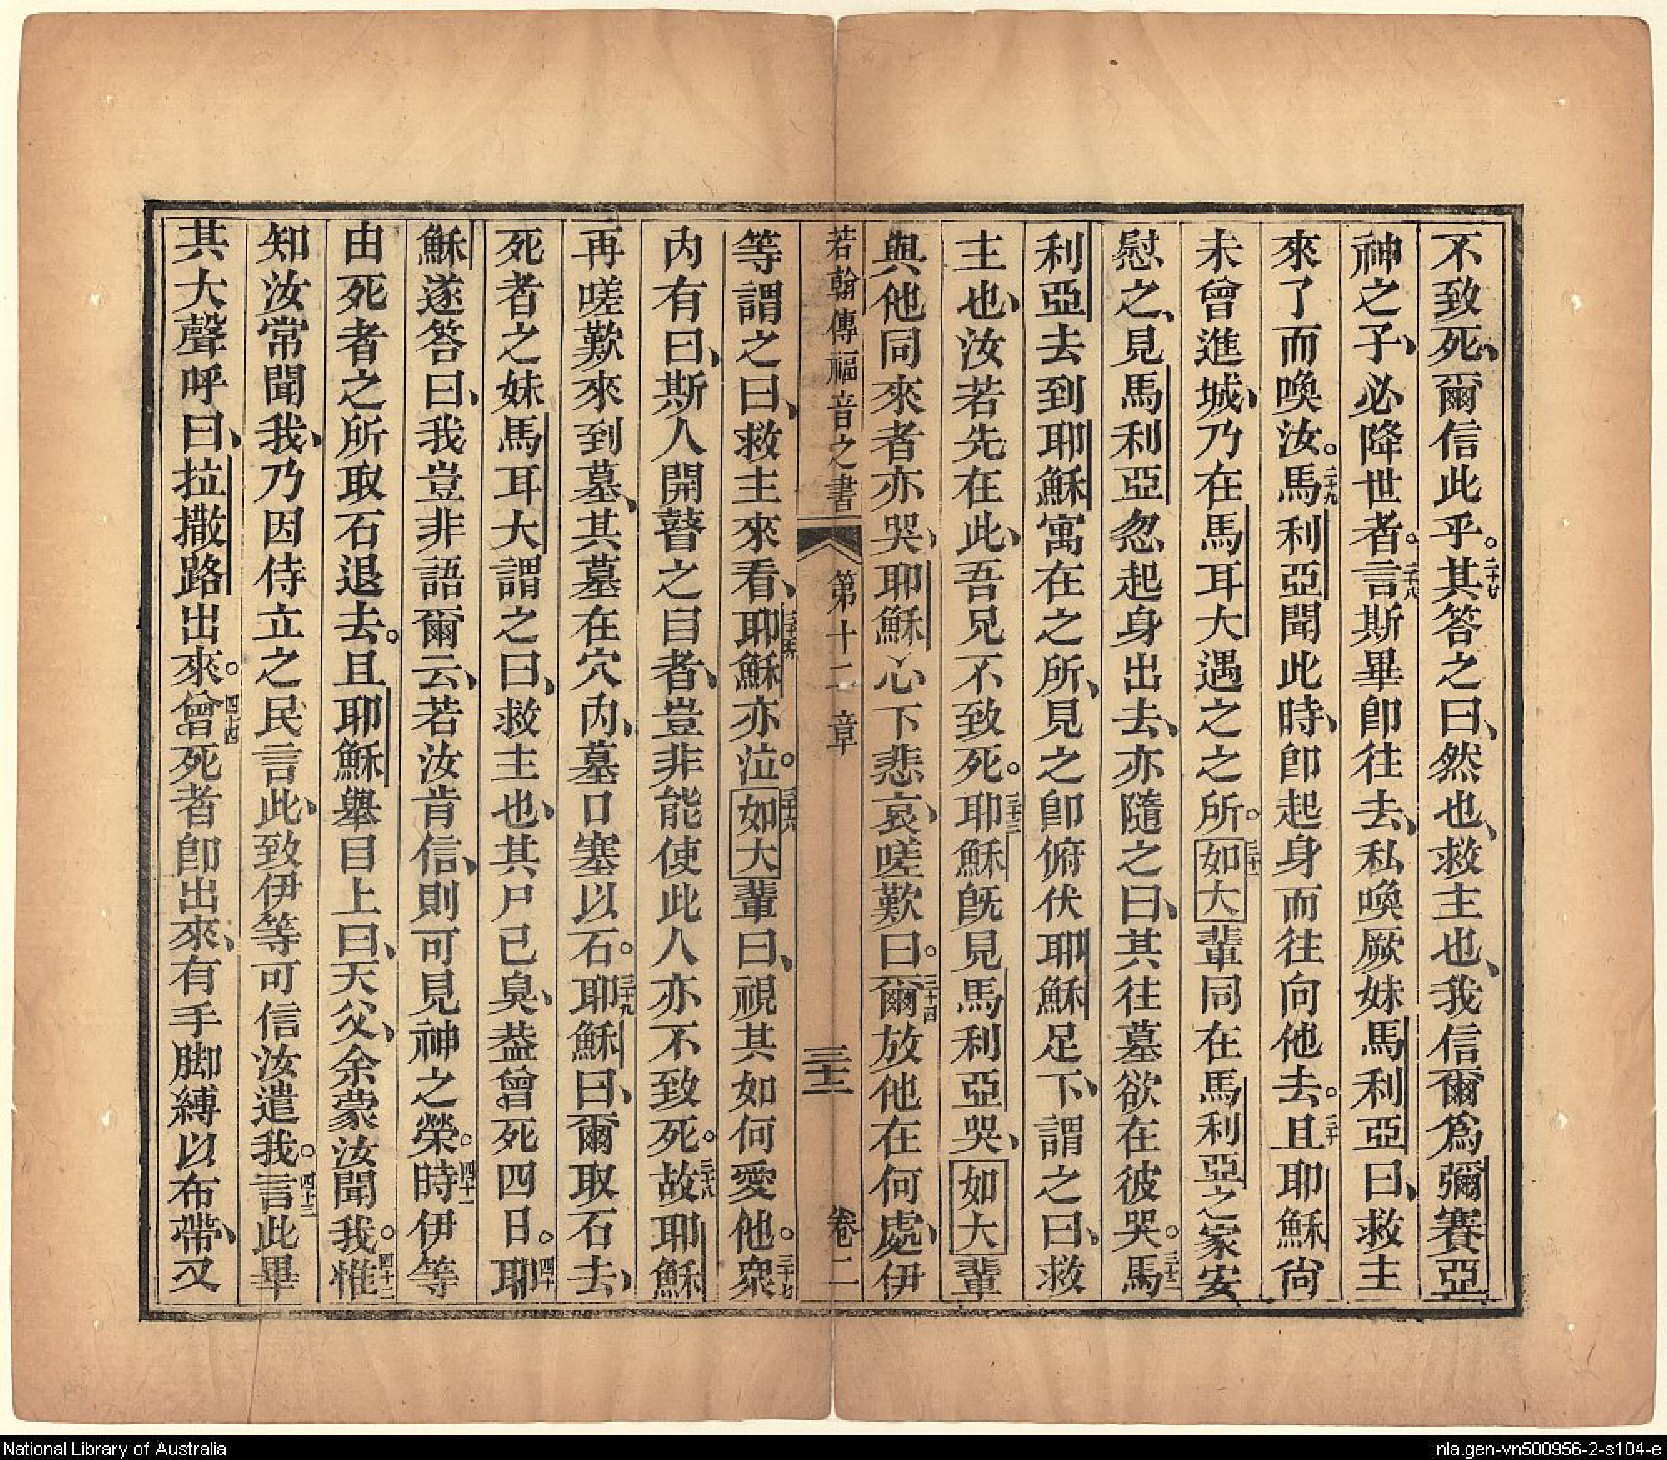 不致死、爾信此乎。二十七其答之曰、然也、救主也、我信爾為彌賽亞
神之子、必降世者。二十八言斯畢卽往去、私喚厥妹馬利亞曰、救主
來了而喚汝。二十九馬利亞聞此時、卽起身而往向他去。三十且耶穌尙
未曾進城、乃在馬耳大遇之之所。三十一如大輩同在馬利亞之家安
慰之、見馬利亞忽起身出去、亦隨之曰、其往墓欲在彼哭。三十二馬
利亞去到耶穌寓在之所、見之卽俯伏耶穌足下、謂之曰、救
主也、汝若先在此、吾兄不致死。三十三耶穌旣見馬利亞哭、如大輩
與他同來者亦哭、耶穌心下悲哀、嗟歎曰。三十四爾放他在何處、伊
若翰傳福音之書 第十一章 三十三 卷二
等謂之曰、救主來看、三十五耶穌亦泣。三十六如大輩曰、視其如何愛他。三十七衆
內有曰、斯人開瞽之目者、豈非能使此人亦不致死。三十八故耶穌
再嗟歎來到墓、其墓在穴內、墓口塞以石。三十九耶穌曰、爾取石去、
死者之妹馬耳大謂之曰、救主也、其尸已臭、葢曾死四日。四十耶
穌遂答曰、我豈非語爾云、若汝肯信、則可見神之榮。四十一時伊等
由死者之所取石退去。且耶穌舉目上曰、天父、余蒙汝聞我。四十二惟
知汝常聞我、乃因侍立之民言此、致伊等可信汝遣我。四十三言此畢
其大聲呼曰、拉撒路出來。四十四曾死者卽出來、有手脚縛以布帶、又
National Library of Australia
nla.gen-vn500956-2-s104-e